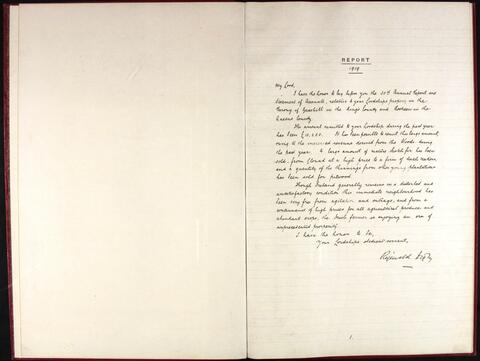 REPORT
1919
My Lord,
I have the honor to lay before you the 50th Annual Report and
Statement of Accounts, relative to your Lordship's property in the
Barony of Geashill in the King's County and elsewhere in the
Queen's County.
The amount remitted to your Lordship during the past year
has been £10,
It has been possible to remit this large amount,
owing to the increased revenue derived from the Woods during
the past year. A large amount of mature
has been
sold, from
at a high price to a firm of
and a quantity of the thinnings from other young plantations
has been sold for pitwood.
Though Ireland generally remains in a disturbed and
unsatisfactory condition this immediate neighbourhood has
been very free from agitation and outrage, and from a
continuance of high prices for all agricultural produce and
abundant crops, the Irish farmer is enjoying an era of
unprecedented prosperity.
I have the honor to be,
Your Lordship's obedient servant,
Reginald Digby
1.